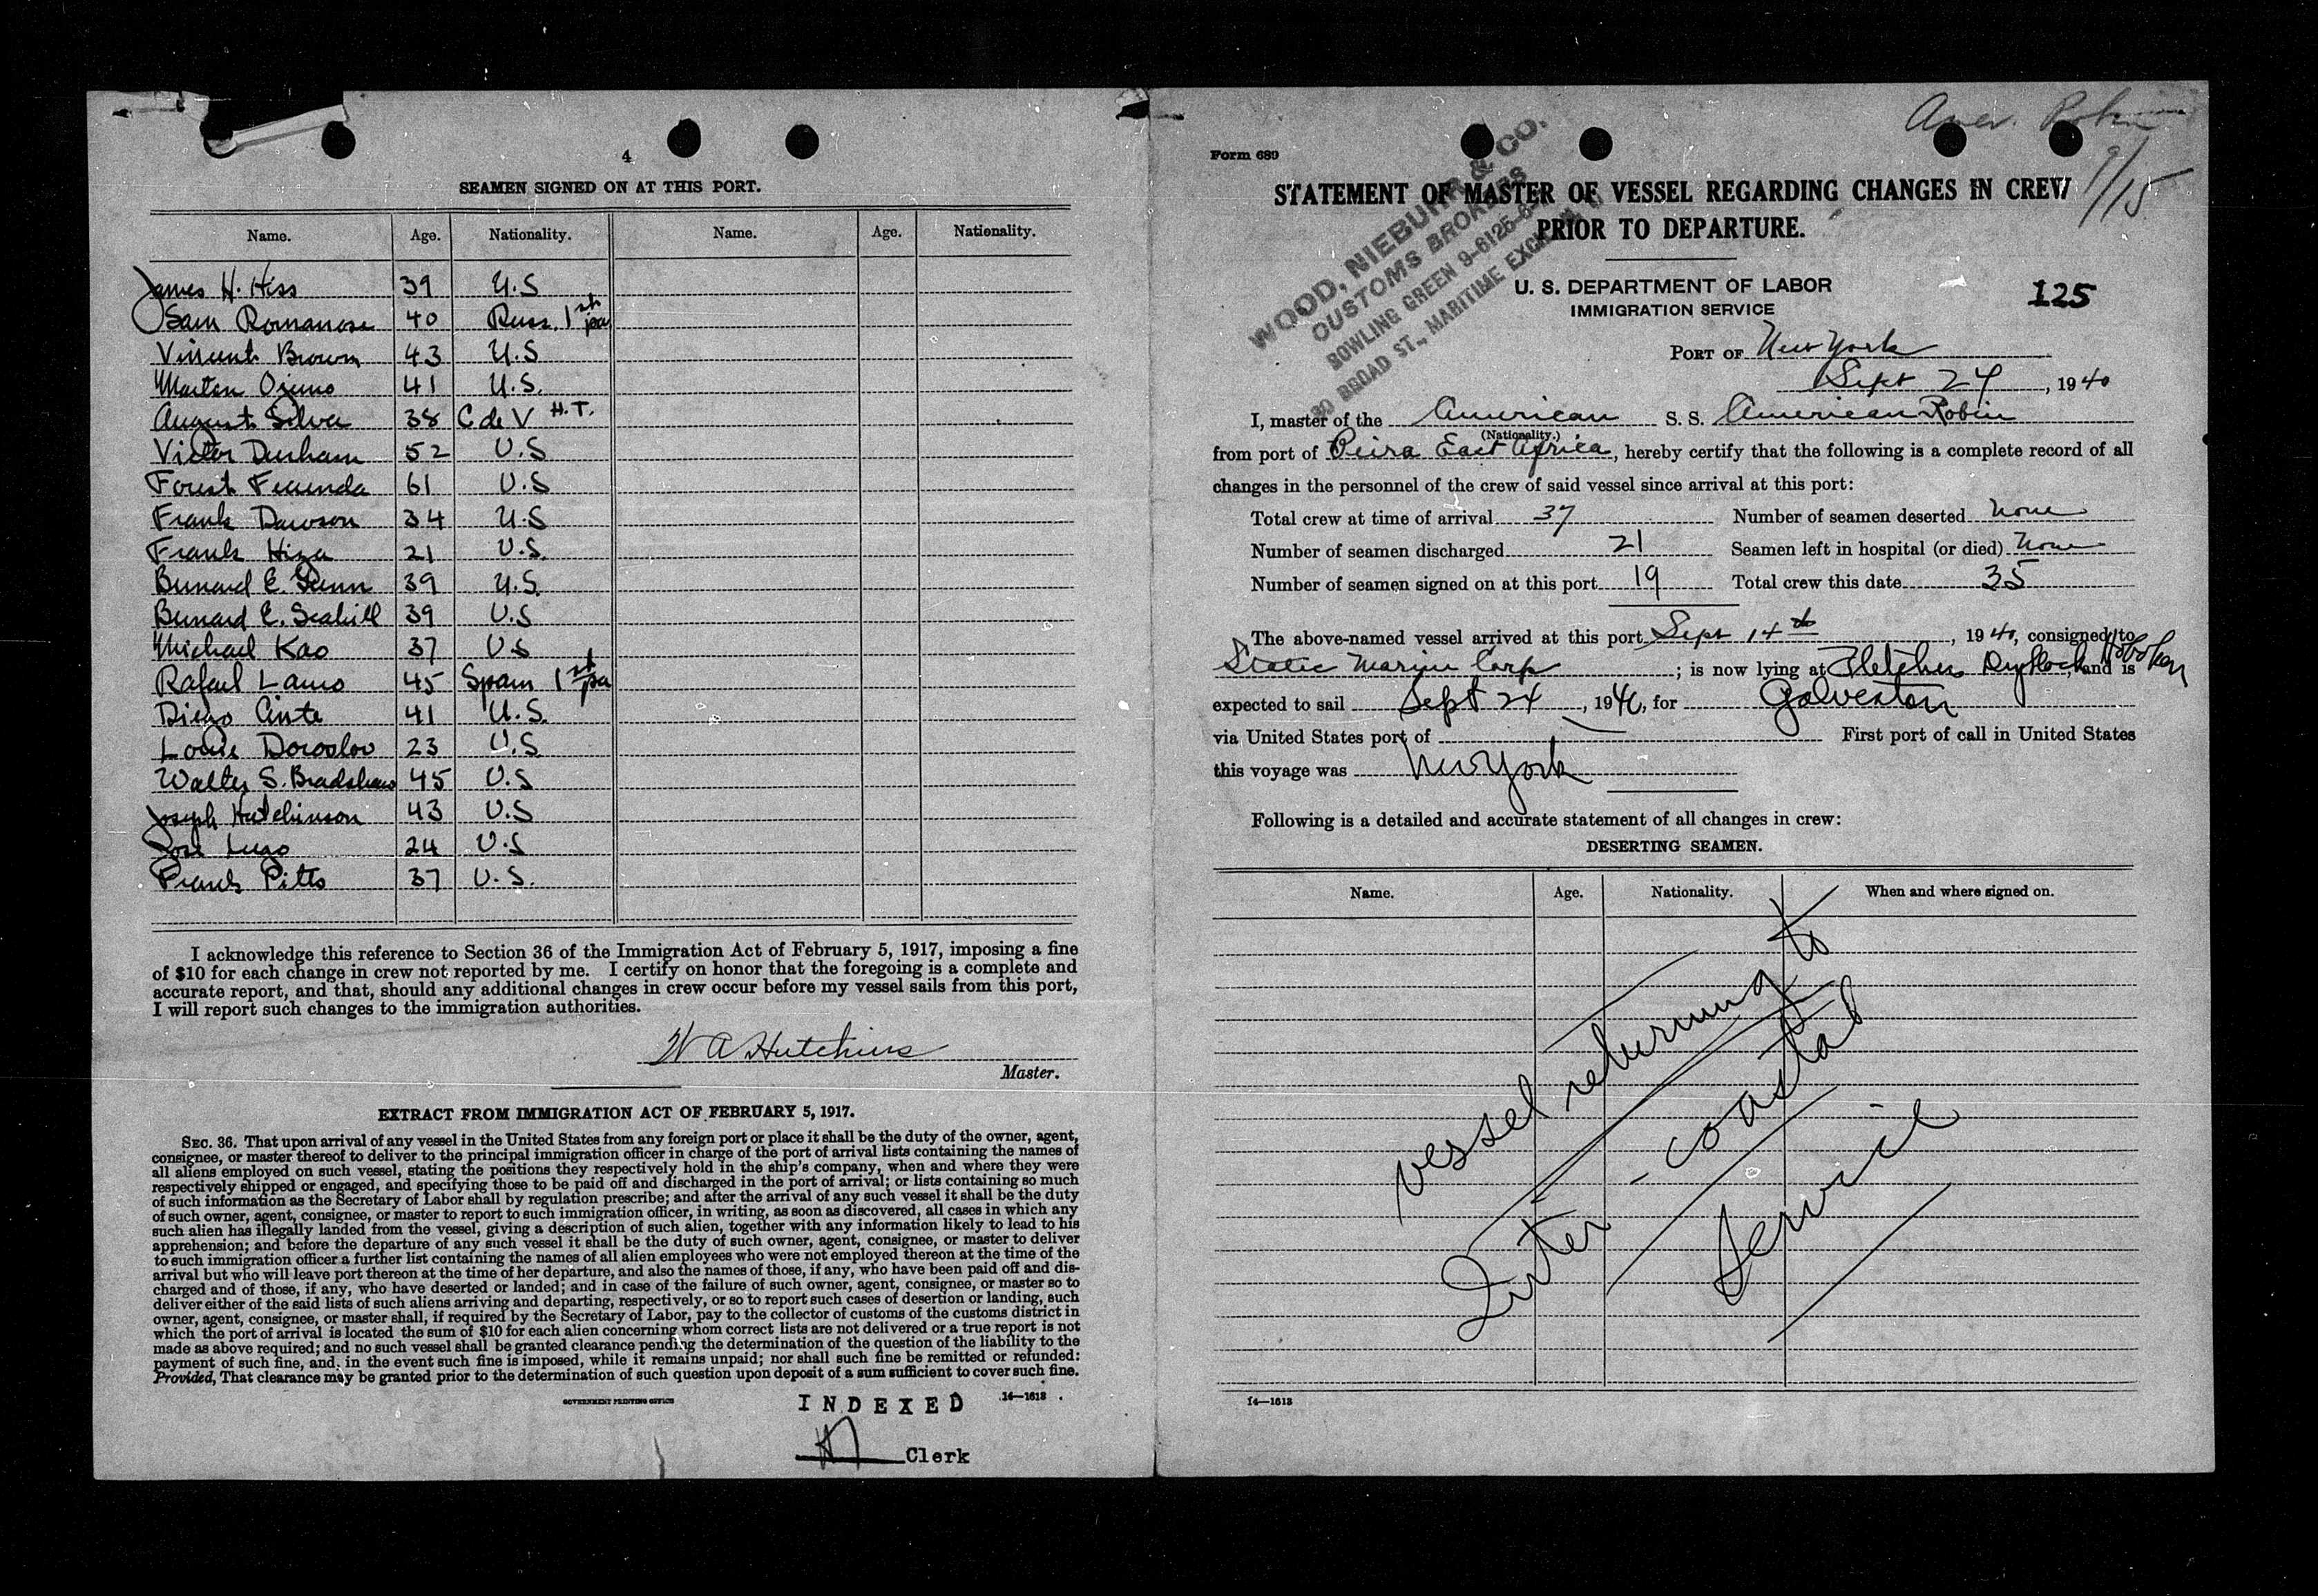 4
SEAMEN SIGNED ON AT THIS PORT.
Name. Age. Nationality. Name. Age. Nationality.
James H. Hiss 39 U.S
Sam Romanose 40 Russ. 1st pa
Vincent Brown 43 U.S
41 U.S.
August Silva 38 C de V H.T.
Victor Durham 52 U.S
Forest 61 U.S
Frank Dawson 34 U.S
Frank Hiza 21 U.S.
Bernard E. 39 U.S.
Bernard E. Seahill 39 U.S
Michael Kao 37 U.S
Rafael Lamo 45 Spain 1st pa
Diego 41 U.S.
Louie Doroslov 23 U.S
Walter S. Bradshaw 45 U.S
Joseph Hutchinson 43 U.S
Jose Lugo 24 U.S
Frank Pitts 37 U.S.
I acknowledge this reference to Section 36 of the Immigration Act of February 5, 1917, imposing a fine
of $10 for each change in crew not reported by me. I certify on honor that the foregoing is a complete and
accurate report, and that, should any additional changes in crew occur before my vessel sails from this port,
I will report such changes to the immigration authorities.
W A Hutchins
Master.
EXTRACT FROM IMMIGRATION ACT OF FEBRUARY 5, 1917.
SEC. 36. That upon arrival of any vessel in the United States from any foreign port or place it shall be the duty of the owner, agent,
consignee, or master thereof to deliver to the principal immigration officer in charge of the port of arrival lists containing the names of
all aliens employed on such vessel, stating the positions they respectively hold in the ship's company, when and where they were
respectively shipped or engaged, and specifying those to be paid off and discharged in the port of arrival; or lists containing so much
of such information as the Secretary of Labor shall by regulation prescribe; and after the arrival of any such vessel it shall be the duty
of such owner, agent, consignee, or master to report to such immigration officer, in writing, as soon as discovered, all cases in which any
such alien has illegally landed from the vessel, giving a description of such alien, together with any information likely to lead to his
apprehension; and before the departure of any such vessel it shall be the duty of such owner, agent, consignee, or master to deliver
to such immigration officer a further list containing the names of all alien employees who were not employed thereon at the time of the
arrival but who will leave port thereon at the time of her departure, and also the names of those, if any, who have been paid off and dis-
charged and of those, if any, who have deserted or landed; and in case of the failure of such owner, agent, consignee, or master so to
deliver either of the said lists of such aliens arriving and departing, respectively, or so to report such cases of desertion or landing, such
owner, agent, consignee, or master shall, if required by the Secretary of Labor, pay to the collector of customs of the customs district in
which the port of arrival is located the sum of $10 for each alien concerning whom correct lists are not delivered or a true report is not
made as above required; and no such vessel shall be granted clearance pending the determination of the question of the liability to the
payment of such fine, and, in the event such fine is imposed, while it remains unpaid; nor shall such fine be remitted or refunded:
Provided, That clearance may be granted prior to the determination of such question upon deposit of a sum sufficient to cover such fine.
GOVERNMENT PRINTING OFFICE
14—1613
INDEXED
Clerk
Amer. Robin
9/15
Form 689
WOOD, NIEBUHR & CO.
CUSTOMS BROKERS
BOWLING GREEN 9-6125-6-
80 BROAD ST., MARITIME EXCH.
STATEMENT OF MASTER OF VESSEL REGARDING CHANGES IN CREW
PRIOR TO DEPARTURE.
U. S. DEPARTMENT OF LABOR
IMMIGRATION SERVICE
125
PORT OF New York
Sept 24, 1940
I, master of the American S. S. American Robin
(Nationality.)
from port of Beira East Africa, hereby certify that the following is a complete record of all
changes in the personnel of the crew of said vessel since arrival at this port:
Total crew at time of arrival 37 Number of seamen deserted None
Number of seamen discharged 21 Seamen left in hospital (or died) None
Number of seamen signed on at this port 19 Total crew this date 35
The above-named vessel arrived at this port Sept 14th, 1940, consigned to
States Marine Corp; is now lying at Fletchers Drydock Hoboken, and is
expected to sail Sept 24, 1940, for Galveston
via United States port of First port of call in United States
this voyage was New York
Following is a detailed and accurate statement of all changes in crew:
DESERTING SEAMEN.
Name. Age. Nationality. When and where signed on.
vessel returning to
Inter-coastal
Service
14—1613